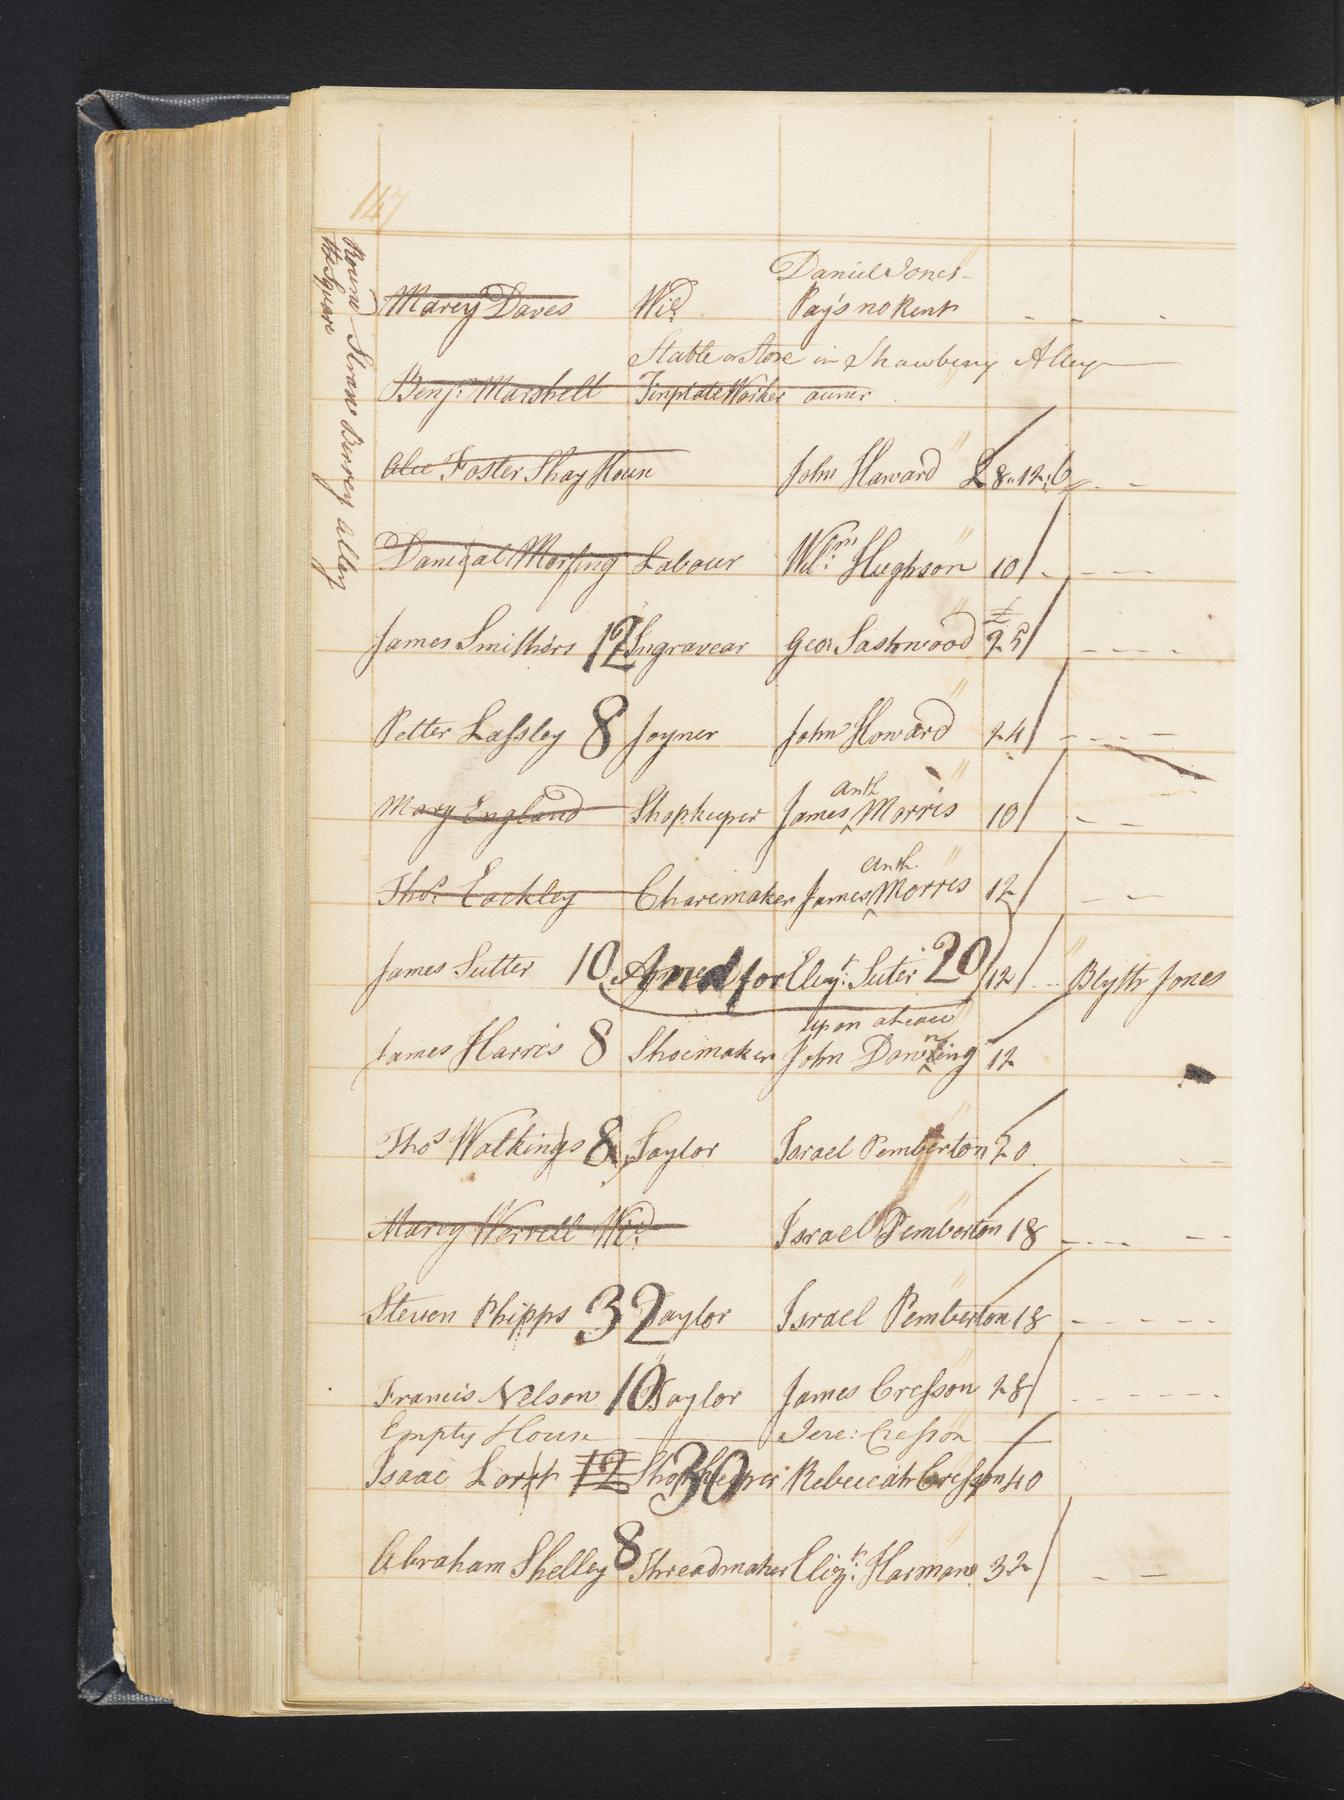 147
Round Straw Berrey alley
the Square
Daniel Jones
Marey Daves Wid. Pay's no Rent
Stable or Store in Strawbery Alley
Benj: Marshell Tinplate Worker owner
Alex Foster Shay House John Haward £8..12:6
Morfing Labour Will:m Hughson 10
James Smithers 12 Ingravear Geo: Sastnwood 25
Petter Lassley 8 Joyner John Howard 24
Anth
Mary England Shopkeeper James ^ Morris 10
Anth.
Thos. Eackley Charemaker James ^ Morris 12
James Sutter 10 for Eliz:t Suter 20 12 Blyth Jones
upon a Leace
James Harris 8 Shoemaker John 12
Thos Watkings 8 Taylor Israel Pemberton 20
Marey Werrell Wid. Israel Pemberton 18
Steven Phipps 32 Taylor Israel Pemberton 18
Francis Nelson 10 Taylor James Cresson 28
Empty House Jere: Cresson
Isaac 12 Shopkeeper 30 Rebeccah Cresson 40
Abraham Shelley 8 Threadmaker Eliz:t Harman 32